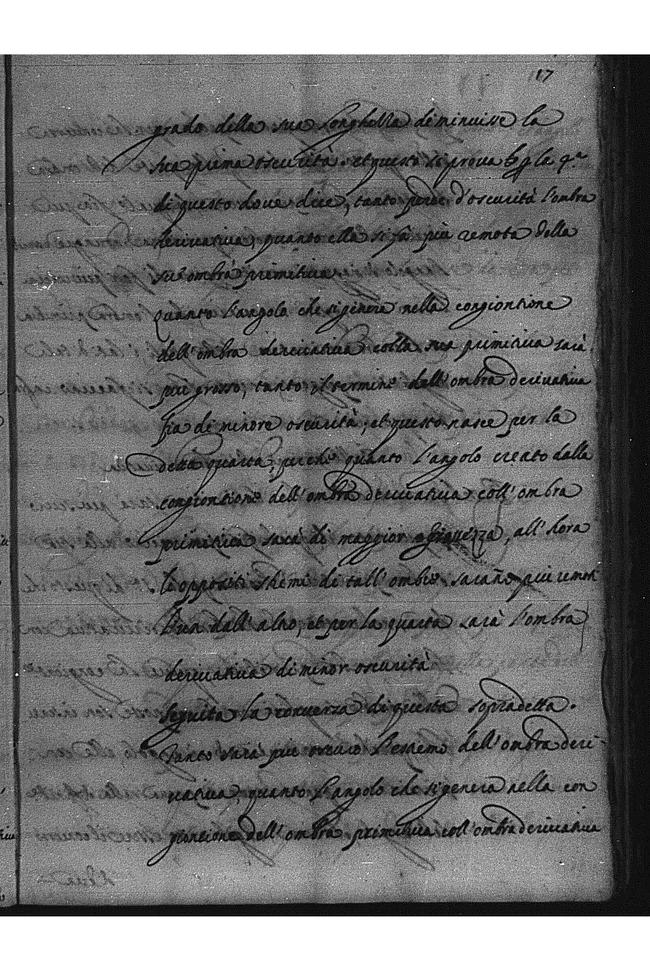 17
grado della sua longhezza deminuisse la
sua prima oscurità. et questo si prova p la 4.ª
di questo dove dice, tanto perde d'oscurità l'ombra
derivativa, quanto ella si fà più remota della
su ombra primitiva
Quanto l'angolo che si genera nella congiontione
dell'ombra derivativa colla sua primitiva sarà
più grosso, tanto il termine dell'ombra derivativa
fia di minore oscurità, et questo nasce per la
detta quarta, perche quanto l'angolo creato dalla
congiontione dell'ombra derivativa coll'ombra
primitiva sarà di maggior, all'hora
li oppositi stremi di tall'ombre saranno più remoti
l'un dall'altro, et per la quarta sarà l'ombra
derivativa di minor oscurità
Seguita la conversa di questa sopradetta.
Tanto sarà più oscuro l'estremo dell'ombra deri-
vativa, quanto l'angolo che si genera nella con
giontione dell'ombra primitiva coll'ombra derivativa